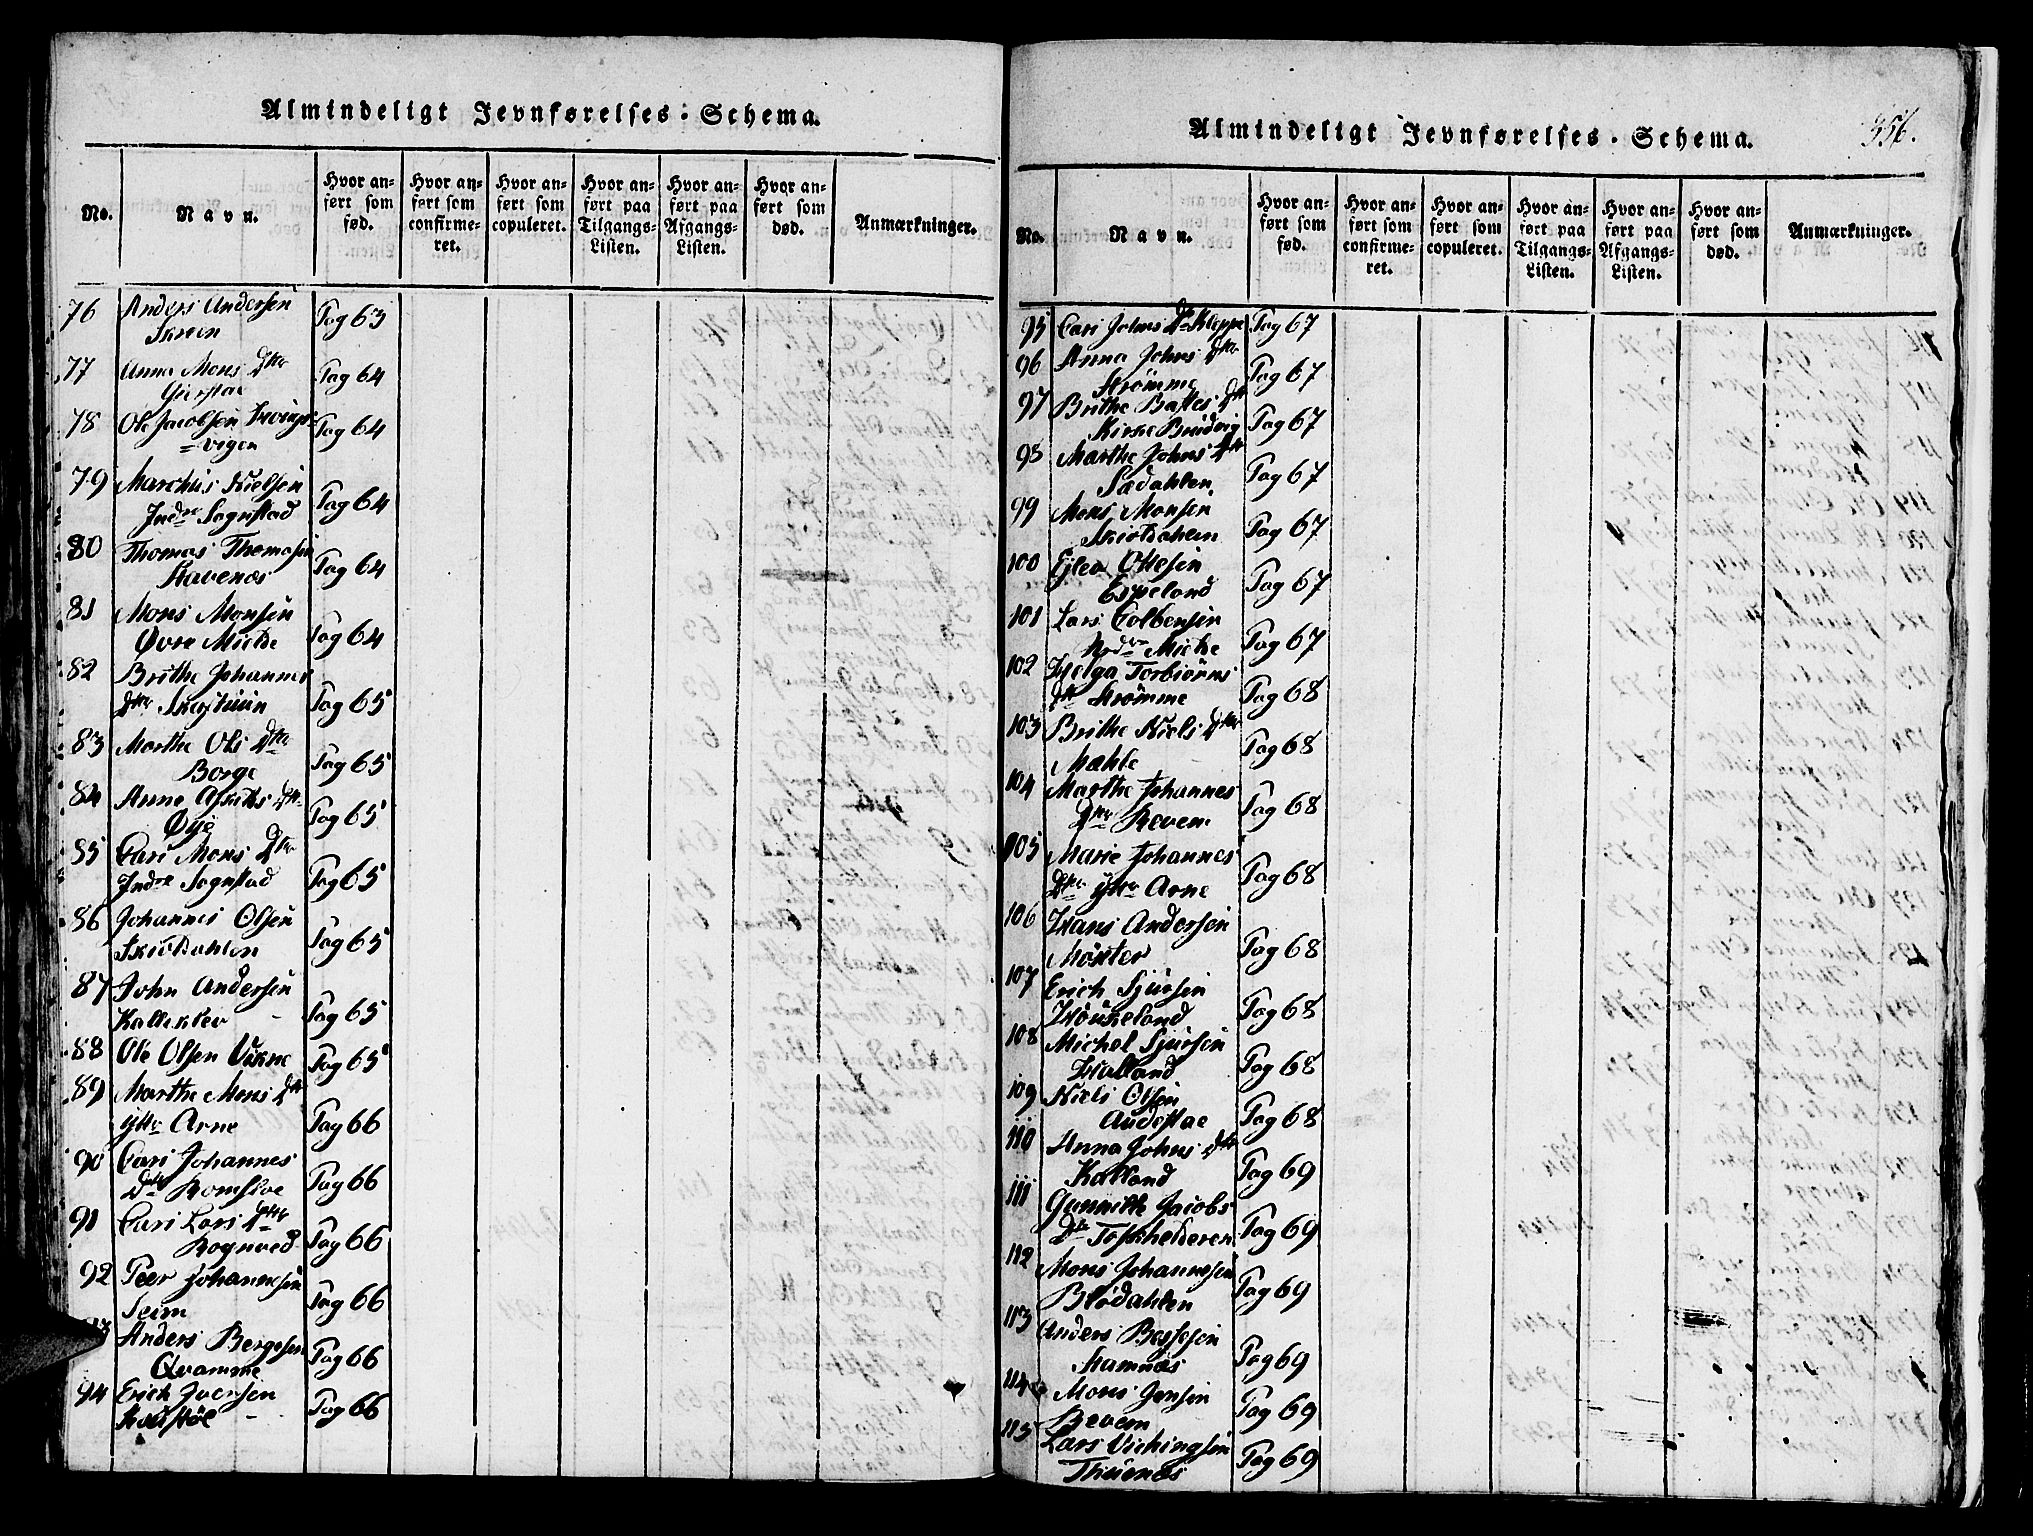 Almindeligt Jevnførelses-Schema.
No.
Navn.
Hvor anført som fød.
Hvor anført som confirmeret.
Hvor anført som copuleret.
Hvor anført paa Tilgangs-Listen.
Hvor anført paa Afgangs-Listen.
Hvor anført som død.
Anmærkninger.
76 Anders Andersen Pag 63
77 Anna Mons Dtr Pag 64
78 Ole Jacobsen Pag 64
79 Marchus Nielsen Pag 64
Indre Sognstad
80 Thomas Thomasen Pag 64
Stavenæs
81 Mons Monsen Pag 64
Øvre Mickle
82 Brithe Johannes Pag 65
Dtr
83 Marthe Ols Dtr Pag 65
Borge
84 Anne Dtr Pag 65
Øye
85 Cari Mons Dtr Pag 65
Indre Sognstad
86 Johannes Olsen Pag 65
Skioldahlen
87 John Andersen Pag 65
Kalleklev
88 Ole Olsen Vikne Pag 65
89 Marthe Mons Dtr Pag 66
Yttr Arne
90 Cari Johannes Pag 66
Dtr Romsloe
91 Cari Lars Dtr Pag 66
Rognved
92 Peer Johannesen Pag 66
Seim
Anders Bergesen Pag 66
Qvamme
94 Erich Iversen Pag 66
Almindeligt Jevnførelses-Schema.
356.
No.
Navn.
Hvor anført som fød.
Hvor anført som confirmeret.
Hvor anført som copuleret.
Hvor anført paa Tilgangs-Listen.
Hvor anført paa Afgangs-Listen.
Hvor anført som død.
Anmærkninger.
95 Cari Johns Dtr Kleppe Pag 67
96 Anna Johns Dtr Pag 67
Strømme
97 Brithe Dtr Pag 67
Kirke Bruvig
98 Marthe Johns Dtr Pag 67
Sædahlen
99 Mons Monsen Pag 67
Skioldahlen
100 Ejlev Olsen Pag 67
Espeland
101 Lars Colbensen Pag 67
Nedre Mickle
102 Helga Torbiørns Pag 68
Dtr Strømme
103 Brithe Niels Dtr Pag 68
Mæhle
104 Marthe Johannes Pag 68
Dtr Reven
105 Marie Johannes Pag 68
Dtr Yttr Arne
106 Hans Andersen Pag 68
Mønster
107 Erich Sjursen Pag 68
Houkeland
108 Michel Sjursen Pag 68
Halland
109 Niels Olsen Pag 68
110 Anna Johns Dtr Pag 69
Kalland
111 Gunnille Jacobs Pag 69
Dtr Toskhelderen
112 Mons Johannesen Pag 69
Blødahlen
113 Anders Pag 69
Hamnæs
114 Mons Jensen Pag 69
Reven
115 Lars Vichingsen Pag 69
Thuenæs